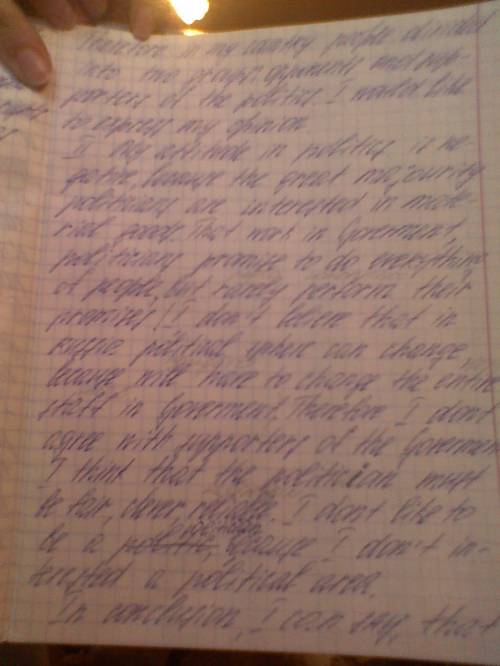 Therefore in my country people divided
into two groups: opponents and sup-
porters of the politics. I would like
to express my opinion
II My attitude in politics is ne-
gative, because the great majourity
politicians are interested in mate-
rial goods. That work in Goverment,
politicians promise to do everything
of people, but rarely perform their
promises. I don't believe that in
Russia political sphere can change,
because will have to change the entire
staff in Goverment. Therefore I don't
agree with supporters of the Govermen
I think that the politician must
be fair, clever, reliable. I don't like to
be a politician, because I don't in-
terested a political area.
In conclusion, I can say, that